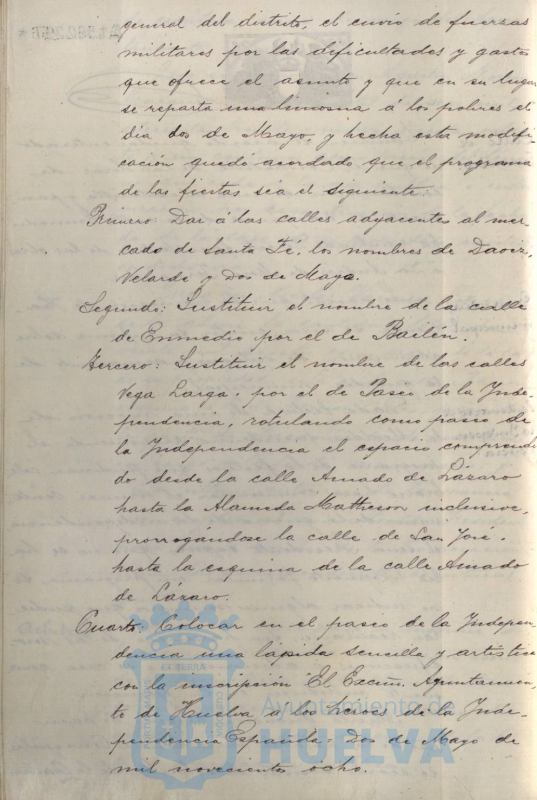 general del distrito, el envio de fuerzas
militares por las dificultades y gastos
que ofrece el asunto y que en su lugar
se reparta una limosna á los pobres el
dia dos de Mayo, y hecha esta modifi-
cación quedó acordado que el programa
de las fiestas sea el siguiente:
Primero: Dar á las calles adyacentes al mer-
cado de Santa Fé, los nombres de Daoiz,
Velarde y Dos de Mayo.
Segundo: Sustituir el nombre de la calle
de Enmedio por el de Bailén.
Tercero: Sustituir el nombre de las calles
Vega Larga, por el de Paseo de la Inde-
pendencia, rotulando como paseo de
la Independencia el espacio comprendi
do desde la calle Amado de Lázaro
hasta la Alameda Matheson inclusive,
prorrogándose la calle de San José,
hasta la esquina de la calle Amado
de Lázaro.
Cuarto: Colocar en el paseo de la Indepen
dencia una lápida sencilla y artística
con la inscripción "El Excmo. Ayuntamien-
to de Huelva a los heroes de la Inde-
pendencia Española, dos de Mayo de
mil novecientos ocho.
Ayuntamiento de
HUELVA